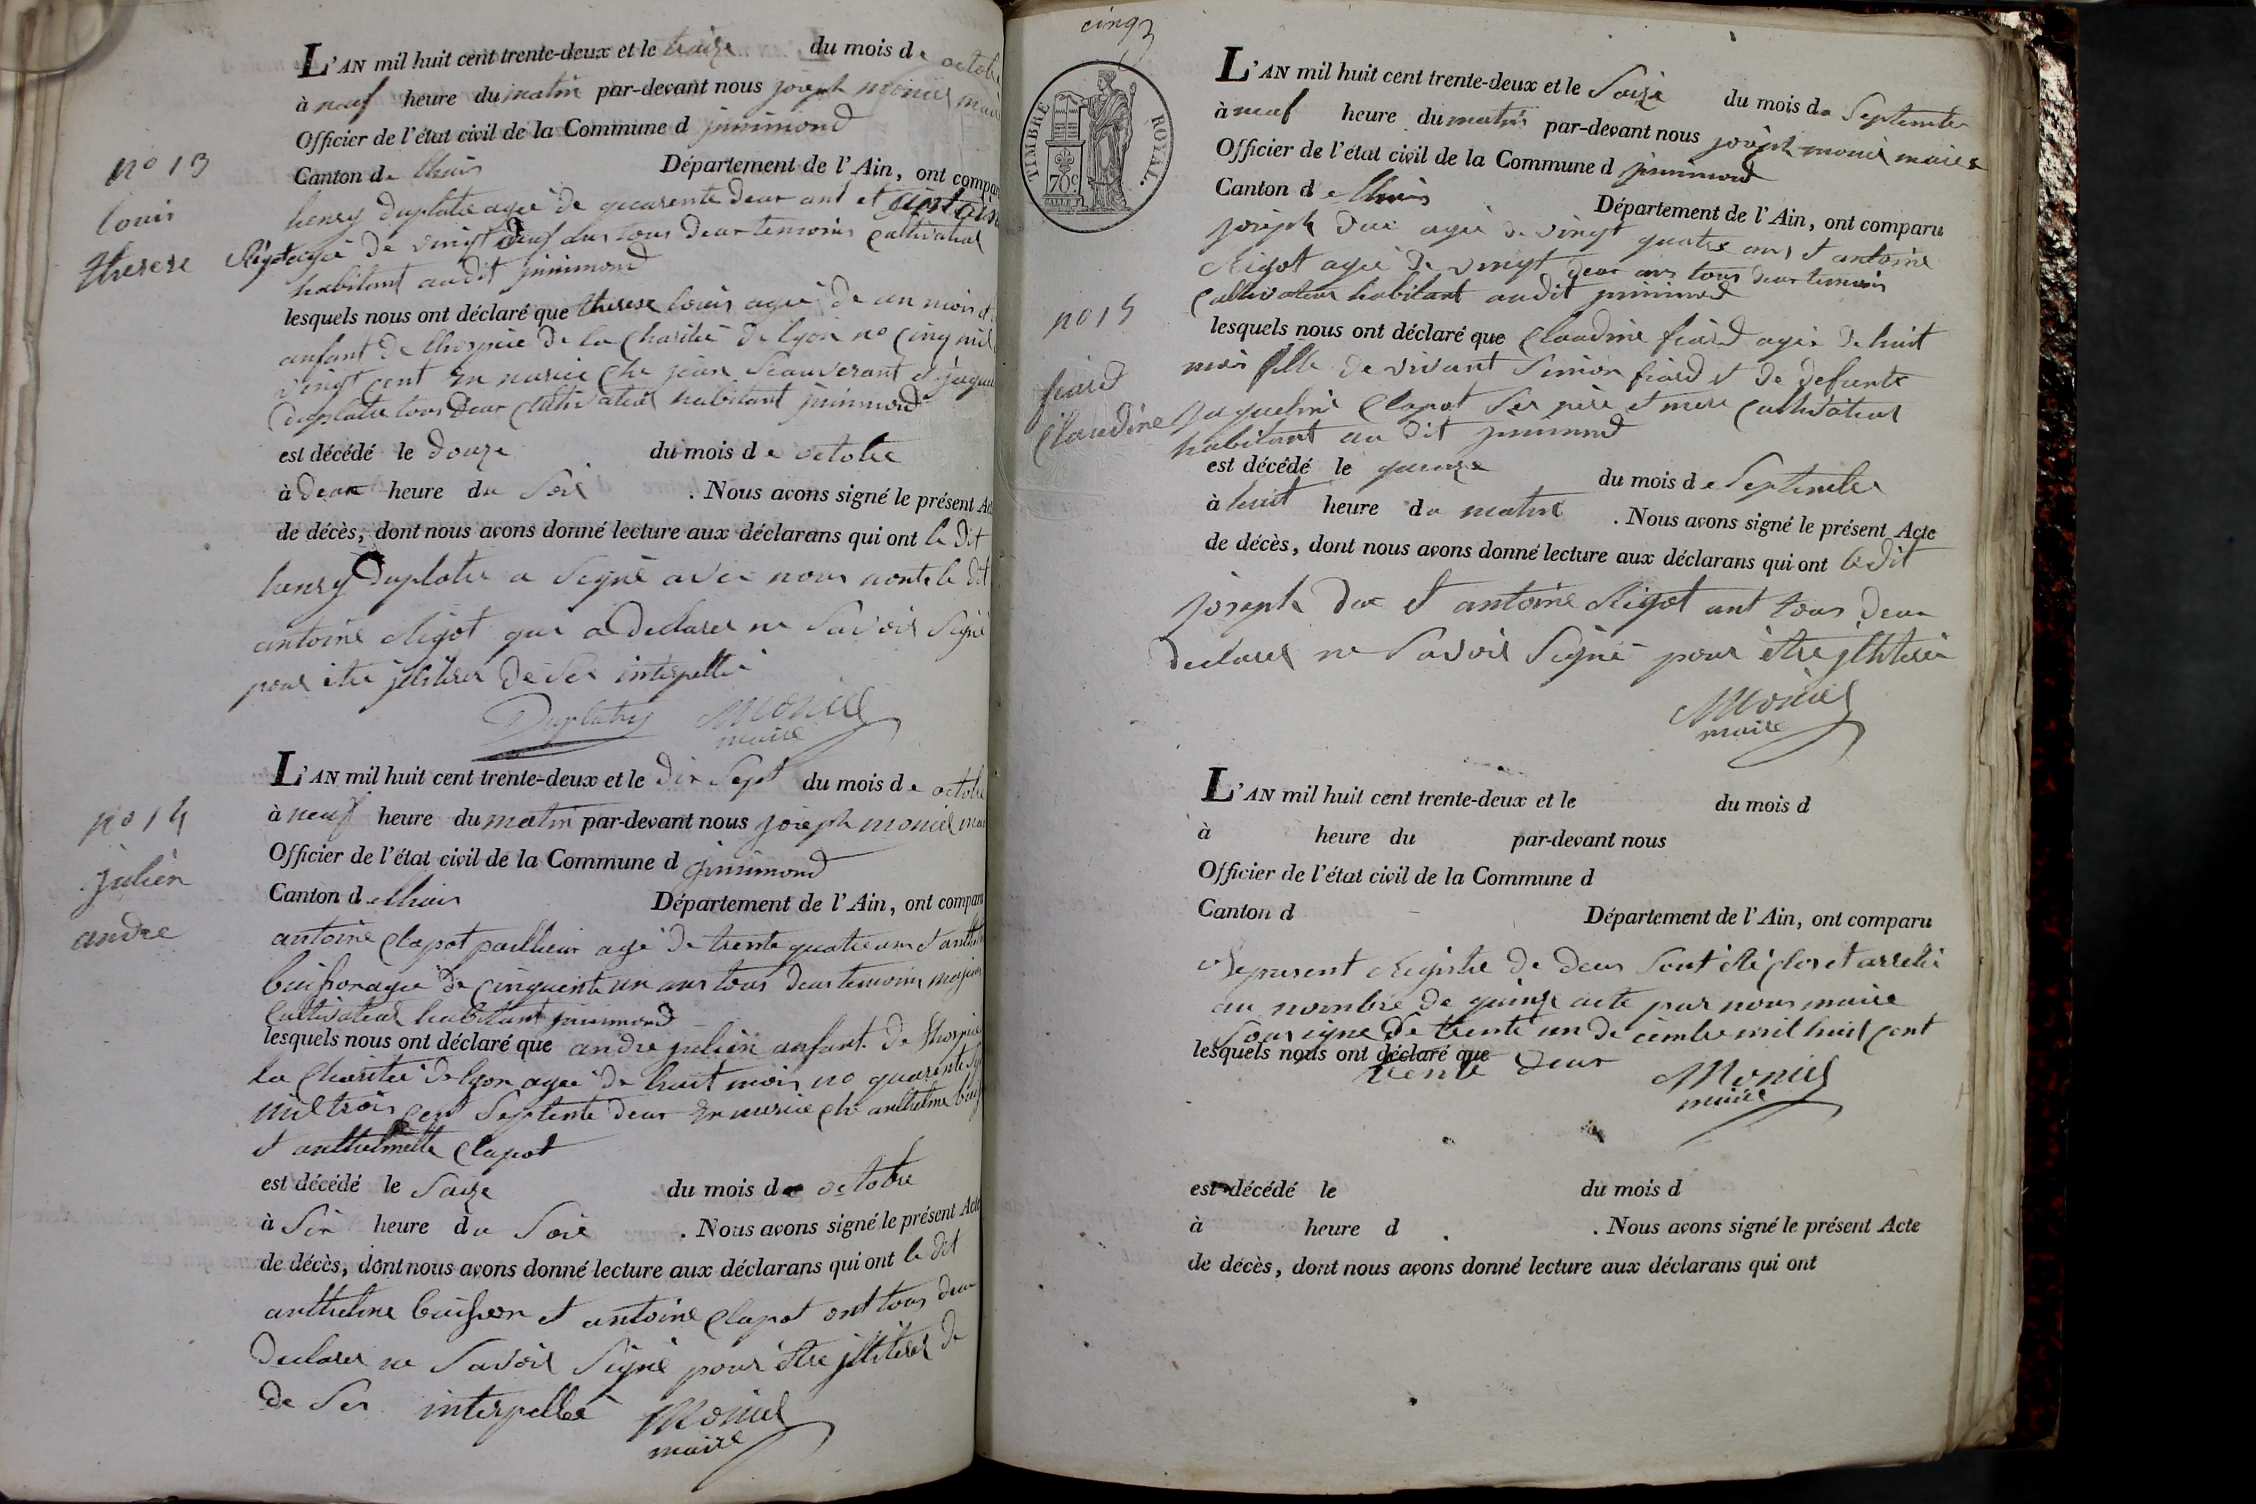 L'AN mil huit cent trente-deux et le traize du mois de octobre
à neuf heure du matin par-devant nous joseph moniel maire
Officier de l'état civil de la Commune d jnnimond
Canton de lhuis Département de l'Ain, ont compar
no 13
louis
therese
henry duplatre agé de quarente deux ans et antoine
Rigot agé de vingt deux ans tous deux temoins cultivateur
habitant audit jnnimond
lesquels nous ont déclaré que therese louis agé de un mois
anfant de lhospice de la Charité de lyon no cinq mil
vingt cent en nurice ché jean et jaque
duplatre tous deux cultivateur habitant jnnimond
est décédé le douze du mois de octobre
à deux heure du Soir . Nous avons signé le présent Ac
de décès, dont nous avons donné lecture aux déclarans qui ont le dit
henry duplatre a Signé avec nous le dit
antoine Rigot qui a declarer ne Savoir Signé
pour être jllitérer de Ses interpellé
Duplatre Moniel
maire
L'AN mil huit cent trente-deux et le dix Sept du mois de octobre
à neuf heure du matin par-devant nous joseph moniel mai
Officier de l'état civil de la Commune d jnnimond
Canton de lhuis Département de l'Ain, ont comparu
no 14
julien
andre
antoine Clapot agé de trente quatre ans et anthelme
buisson agé de cinquente un ans tous deux temoins majeur
Cultivateur habitant jnnimond
lesquels nous ont déclaré que andre julien anfant de lhospice
la Charité de lyon agé de huit mois no quarente Sept
mil trois cent Septente deux en nurice ché anthelme buisson
et anthelmette Clapot
est décédé le Saize du mois de octobre
à Six heure du Soir . Nous avons signé le présent Acte
de décès, dont nous avons donné lecture aux déclarans qui ont le dit
anthelme buisson et antoine Clapot ont tous deux
declarer ne Savoir Signé pour être jllitérer de
de Ses interpellé Moniel
maire
cinq
TIMBRE ROYAL.
70 c
L'AN mil huit cent trente-deux et le Saize du mois de Septembre
à neuf heure du matin par-devant nous joseph moniel maire
Officier de l'état civil de la Commune d jnnimond
Canton de lhuis Département de l'Ain, ont comparu
no 15
fiard
Claudine
joseph duc agé de vingt quatre ans et antoine
Rigot agé de vingt deux ans tous deux temoin
Cultivateur habitant audit jnnimond
lesquels nous ont déclaré que Claudine fiard agé de huit
mois fille de vivant Simon fiard et de defunte
jaqueline Clapot Ses père et mere Cultivateur
habitant au dit jnnimond
est décédé le quinze du mois de Septembre
à huit heure du matin . Nous avons signé le présent Acte
de décès, dont nous avons donné lecture aux déclarans qui ont ledit
joseph duc et antoine Rigot ont tous deux
declarer ne Savoir Signé pour être jllitérer
Moniel
maire
L'AN mil huit cent trente-deux et le du mois d
à heure du par-devant nous
Officier de l'état civil de la Commune d
Canton d Département de l'Ain, ont comparu
le present Registre de deces Sont été clos et arreté
au nombre de quinze acte par nous maire
Sousigné le trente un decembre mil huit cent
lesquels nous ont déclaré que
trente deux Moniel
maire
est décédé le du mois d
à heure d . Nous avons signé le présent Acte
de décès, dont nous avons donné lecture aux déclarans qui ont